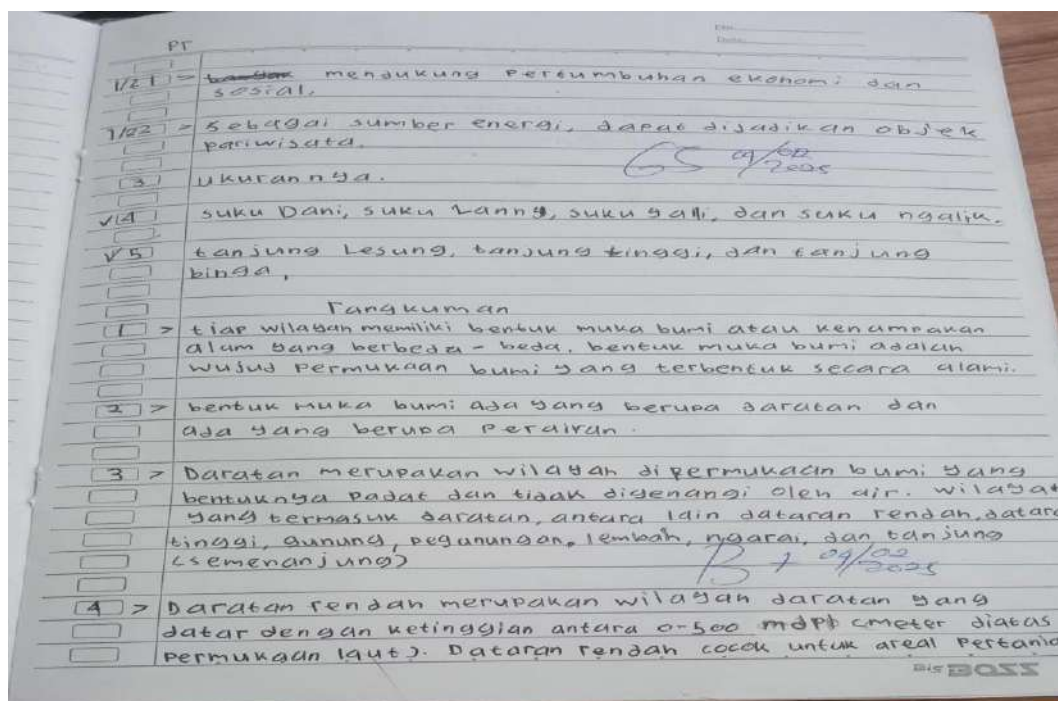 PT
1/21 > mendukung Pertumbuhan ekonomi dan
sosial.
1/22 > Sebagai sumber energi, dapat dijadikan objek
Pariwisata.
65 09/02 2025
3 ukurannya.
√4 suku Dani, suku Lanny, suku yali, dan suku ngalik.
√5 tanjung Lesung, tanjung tinggi, dan tanjung
binga,
rangkuman
1 > tiap wilayah memiliki bentuk muka bumi atau kenampakan
alam yang berbeda-beda. bentuk muka bumi adalah
wujud permukaan bumi yang terbentuk secara alami.
2 > bentuk muka bumi ada yang berupa daratan dan
ada yang berupa Perairan.
3 > Daratan merupakan wilayah di permukaan bumi yang
bentuknya Padat dan tidak digenangi oleh air. wilayah
yang termasuk daratan, antara lain dataran rendah, datara
tinggi, gunung, pegunungan, lembah, ngarai, dan tanjung
(semenanjung)
B + 09/02 2025
4 > Daratan rendah merupakan wilayah daratan yang
datar dengan ketinggian antara 0-500 mdpl (meter diatas
Permukaan laut). Dataran rendah cocok untuk areal Pertania
BIG BOSS